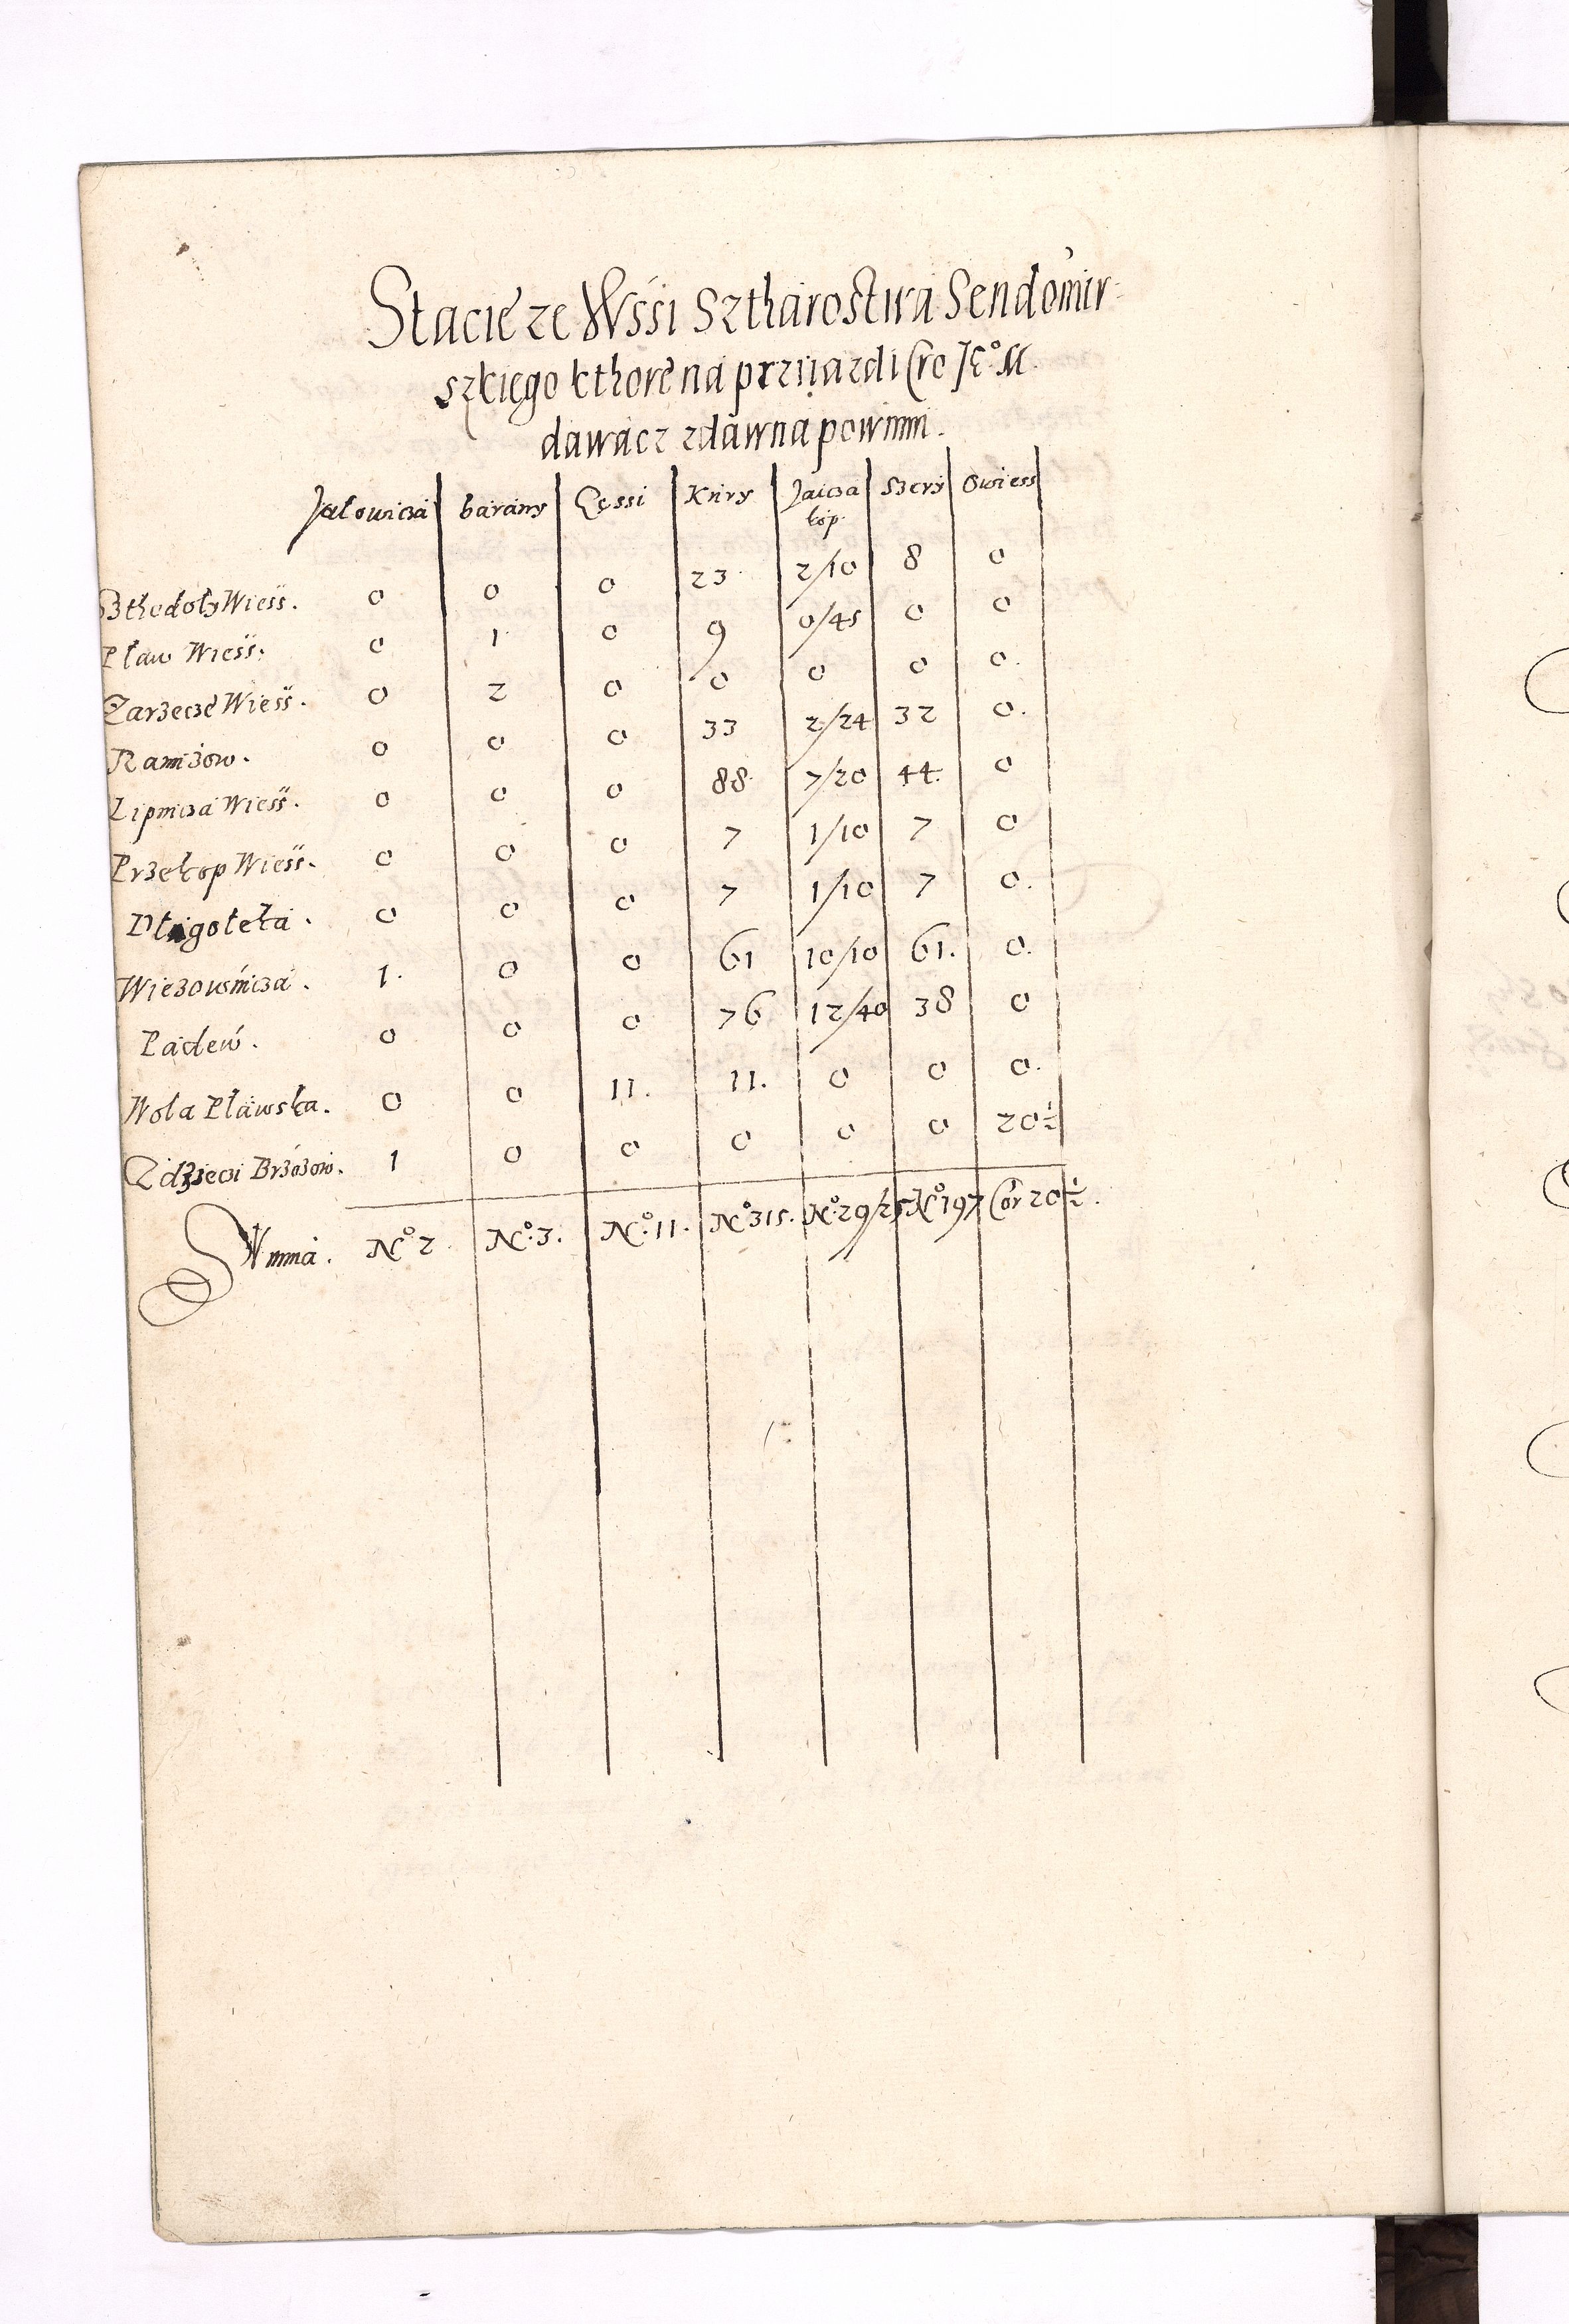 Stacie ze Wśsi Sztharostwa Sendomir-
szkiego kthore na prziiazdi Cro Jeº M.
dawacz zdawna powinni.
Jalowicza barany Gęssi Kury Jaicza Szery Owiess
kop.
Szthedoły Wiess. 0 0 0 23 2/10 8 0
Pław Wiess. 0 1 0 9 0/45 0 0
Zarzecze Wiess. 0 2 0 0 0 0 0.
Ranizow. 0 0 0 33 2/24 32 0.
Lipnicza Wiess. 0 0 0 88 7/20 44. 0
Przekop Wiess. 0 0 0 7 1/10 7 0
Długołeka. 0 0 0 7 1/10 7 0.
Wiezownicza. 1. 0 0 61 10/10 61. 0.
Padew. 0 0 0 76 12/40 38 0
Wola Pławska. 0 0 11. 11. 0 0 0.
Zidzieczi Brzozow. 1 0 0 0 0 0 20½
Summa. Nº 2. Nº. 3. Nº. 11. Nº 315. Nº. 29/25 Nº 197 Cor 20½.